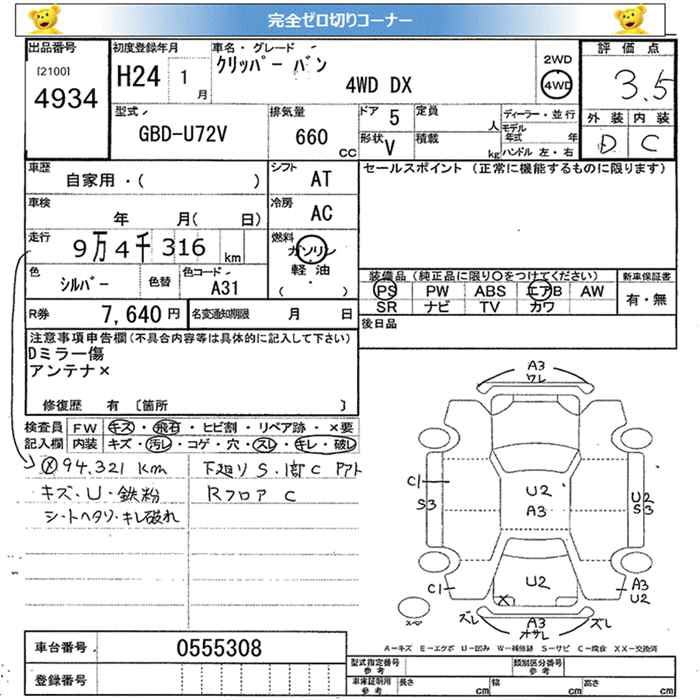 完全ゼロ切りコーナー
出品番号
[2100]
4934
初度登録年月
H24 1
月
車名・グレード
クリッパー バン
4WD DX
2WD
4WD
評価点
3.5
外装 内装
D C
型式
GBD-U72V
排気量
660
CC
ドア 5
形状 V
定員
人
積載
kg
ディーラー・並行
モデル年式 年
ハンドル 左・右
車歴
自家用・( )
シフト
AT
セールスポイント (正常に機能するものに限ります)
車検
年 月( 日)
冷房
AC
走行
9万4千316 km
燃料
ガソリン
軽油
( ・ )
色
シルバー
色替
色コード
A31
装備品 (純正品に限り○をつけてください)
新車保証書
PS PW ABS エアB AW
有・無
SR ナビ TV カワ
R券 7,640 円
名変通知期限 月 日
後日品
注意事項申告欄(不具合内容等は具体的に記入して下さい)
Dミラー傷
アンテナ×
修復歴 有 〔箇所 〕
検査員
記入欄
FW キズ・飛石・ヒビ割・リペア跡・×要
内装 キズ・汚れ・コゲ・穴・スレ・キレ・破レ
94,321 km
キズ・U・鉄粉
シートヘタリ・キレ破れ
下廻り S・1部C アアト
Rフロア C
A3
ワレ
C1
S3
U2
A3
U2
S3
U2
C1
X
A3
U2
ズレ
A3
オサレ
ズレ
A-キズ E-エクボ U-凹み W-補修跡 S-サビ C-腐食 XX-交換済
車台番号
0555308
登録番号
型式指定番号
参考
類別区分番号
参考
車庫証明用
参考
長さ cm
幅 cm
高さ cm